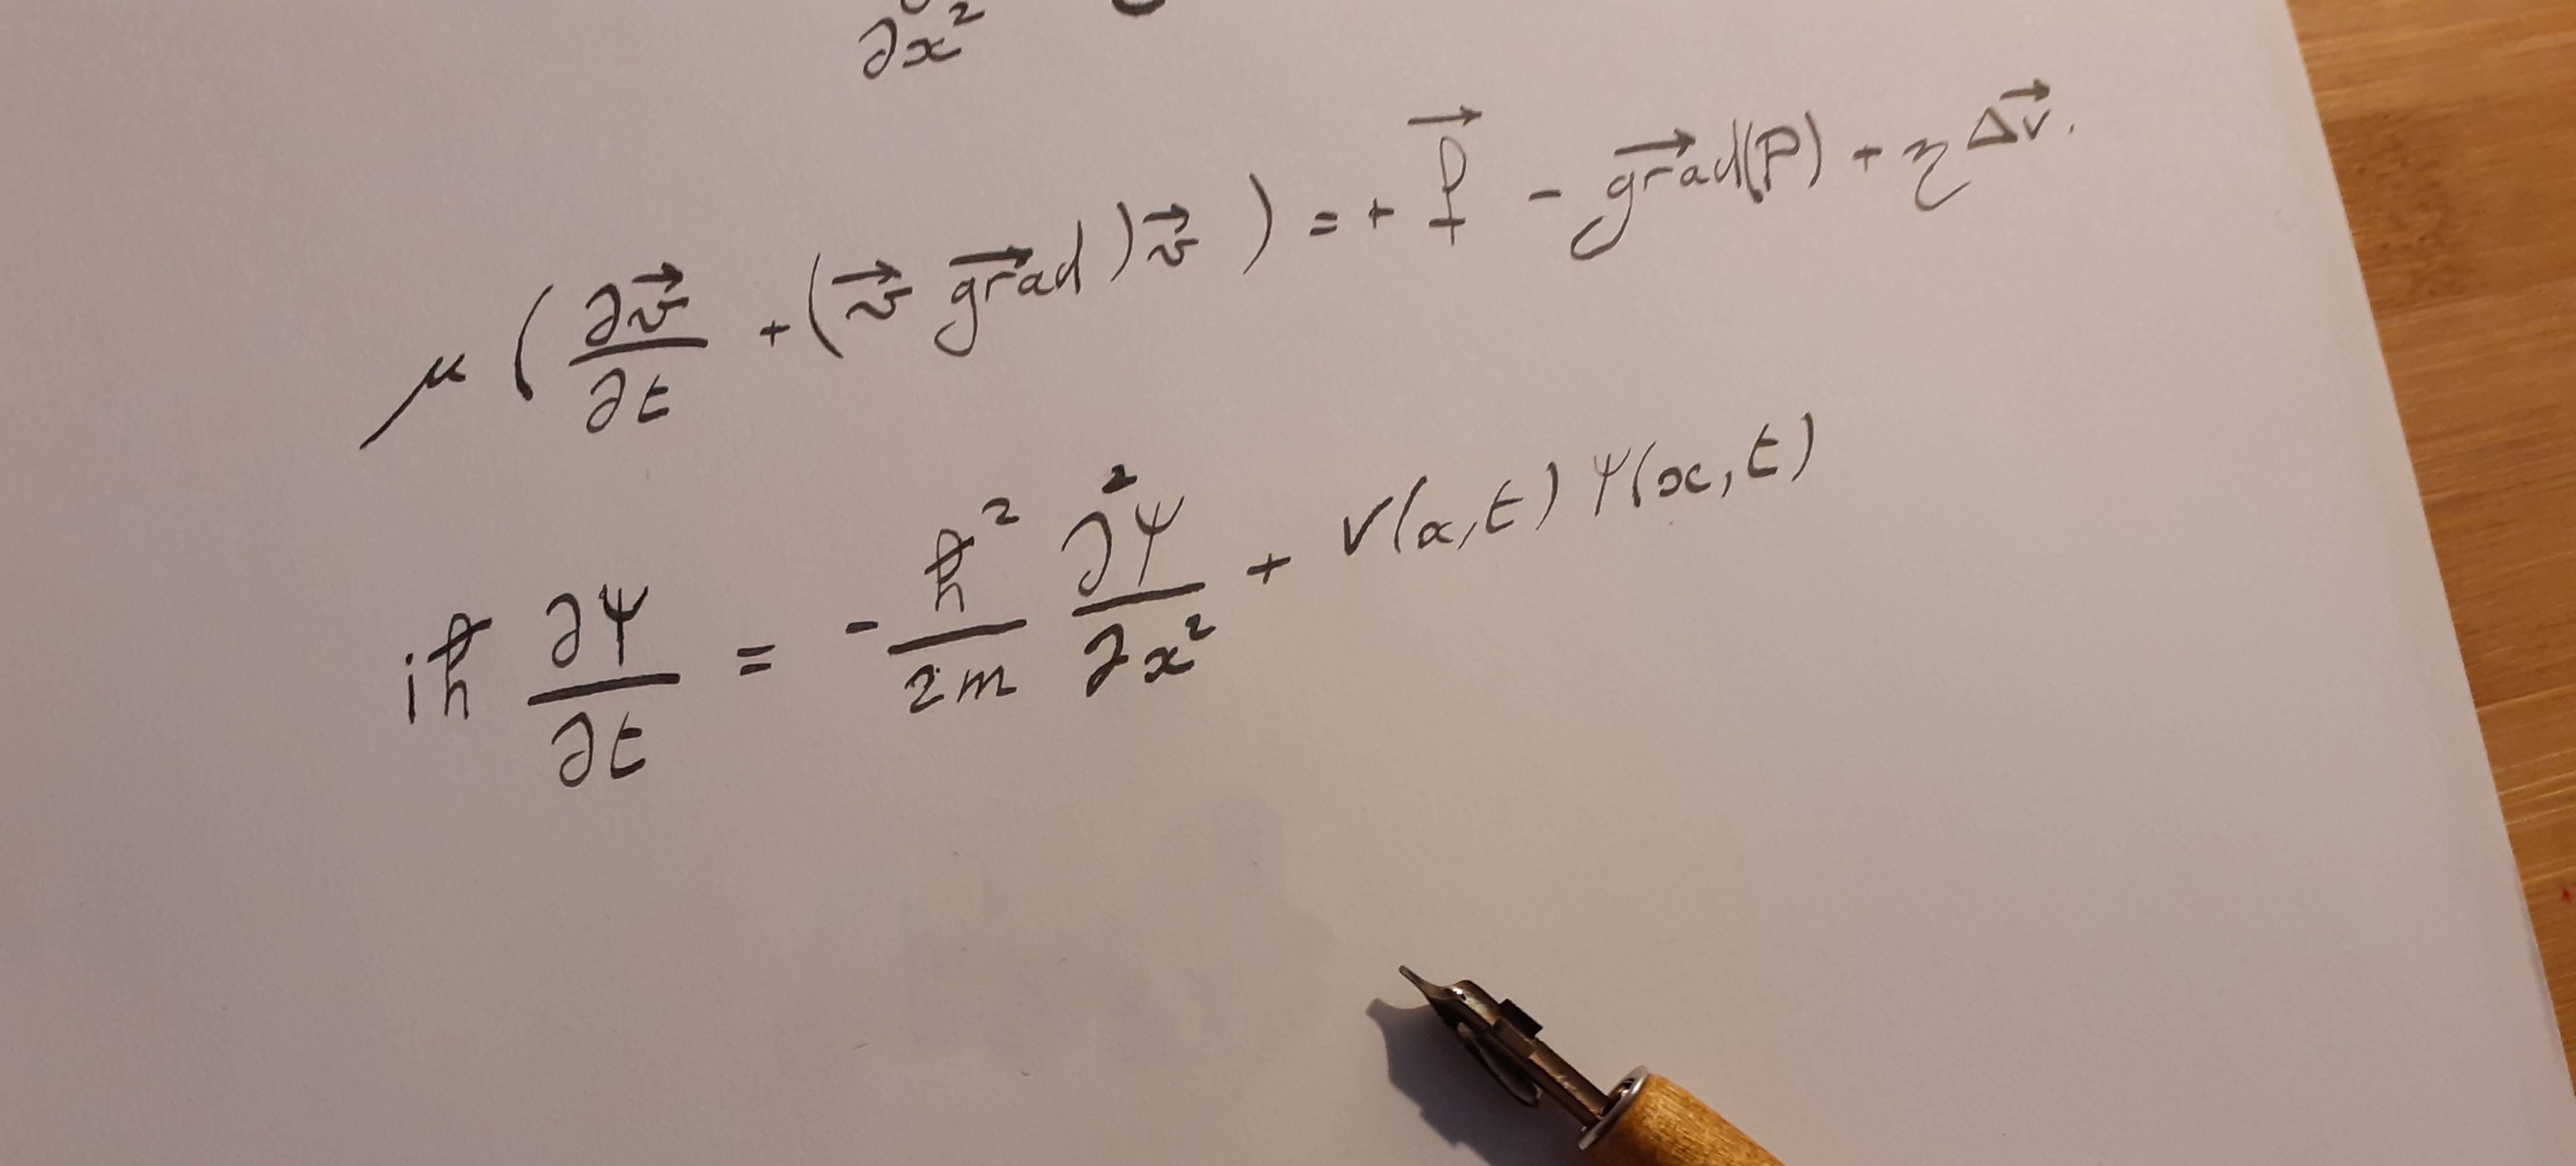 ∂x²
μ ( ∂v⃗/∂t + (v⃗ grad⃗) v⃗ ) = + f⃗ - grad⃗(P) + η Δv⃗.
iħ ∂ψ/∂t = - ħ²/2m ∂²ψ/∂x² + V(x,t) ψ(x,t)